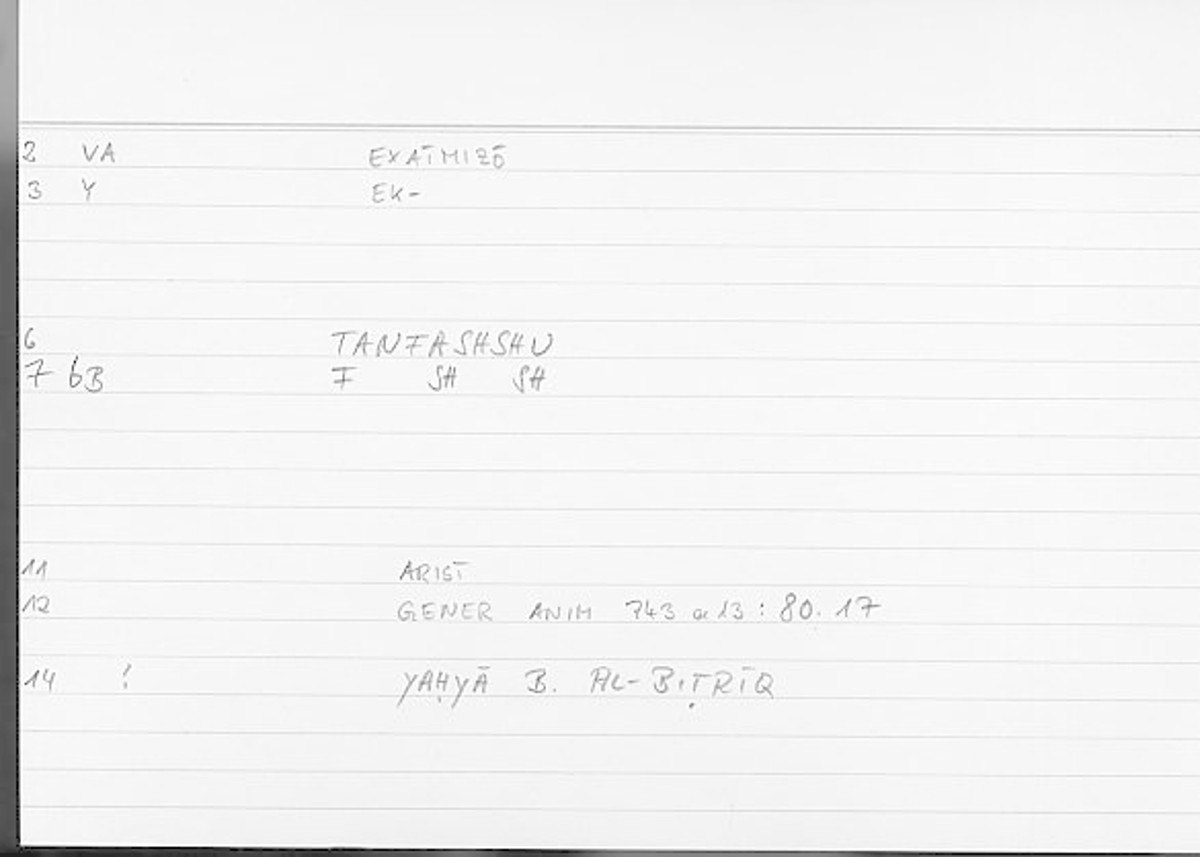 2 VA EXATMIZŌ
3 Y EK-
6 TANFASHSHU
7 6B F SH SH
11 ARIST
12 GENER ANIM 743 a 13 : 80. 17
14 ! YAḤYĀ B. AL-BIṬRĪQ